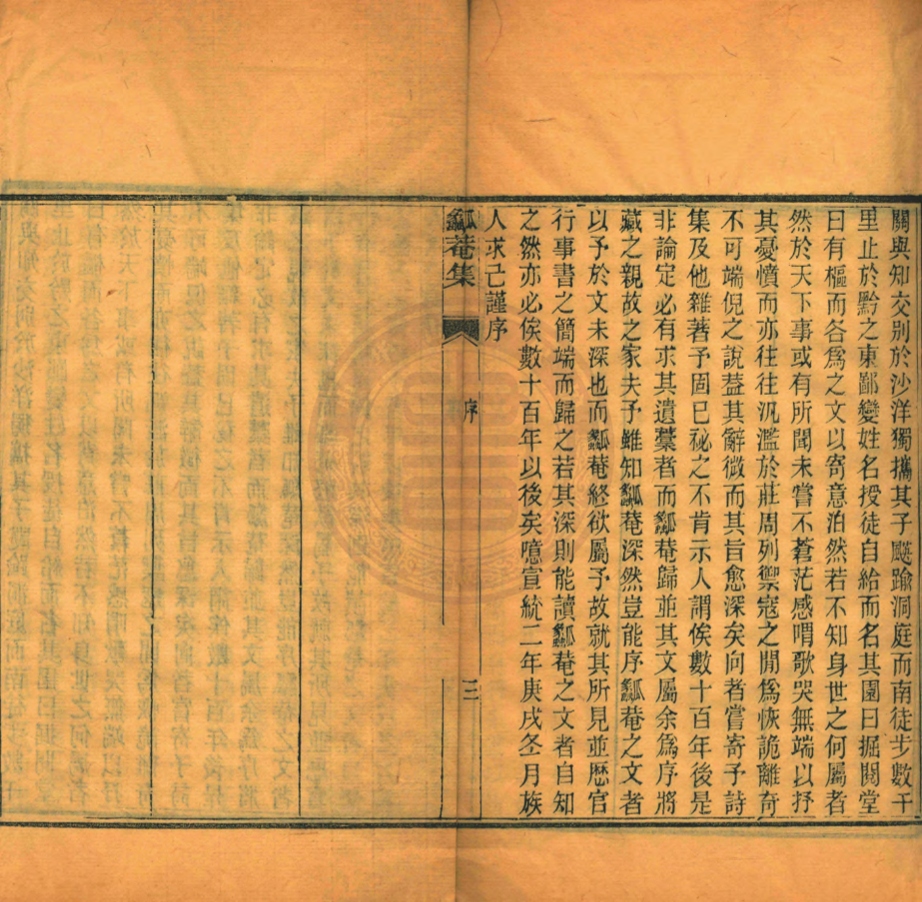 關與知交別於沙洋獨攜其子颺踰洞庭而南徒步數千
里止於黔之東鄙變姓名授徒自給而名其園曰掘閱堂
曰有樞而各爲之文以寄意泊然若不知身世之何屬者
然於天下事或有所聞未嘗不蒼茫感喟歌哭無端以抒
其憂憤而亦往往汎濫於莊周列禦寇之閒爲恢詭離奇
不可端倪之說葢其辭微而其旨愈深矣向者嘗寄予詩
集及他雜著予固已秘之不肯示人謂俟數十百年後是
非論定必有求其遺藁者而瓤菴歸並其文屬余爲序將
藏之親故之家夫予雖知瓤菴深然豈能序瓤菴之文者
以予於文未深也而瓤菴終欲屬予故就其所見並厯官
行事書之簡端而歸之若其深則能讀瓤菴之文者自知
之然亦必俟數十百年以後矣噫宣統二年庚戌冬月族
人求己謹序
菴集
序
三